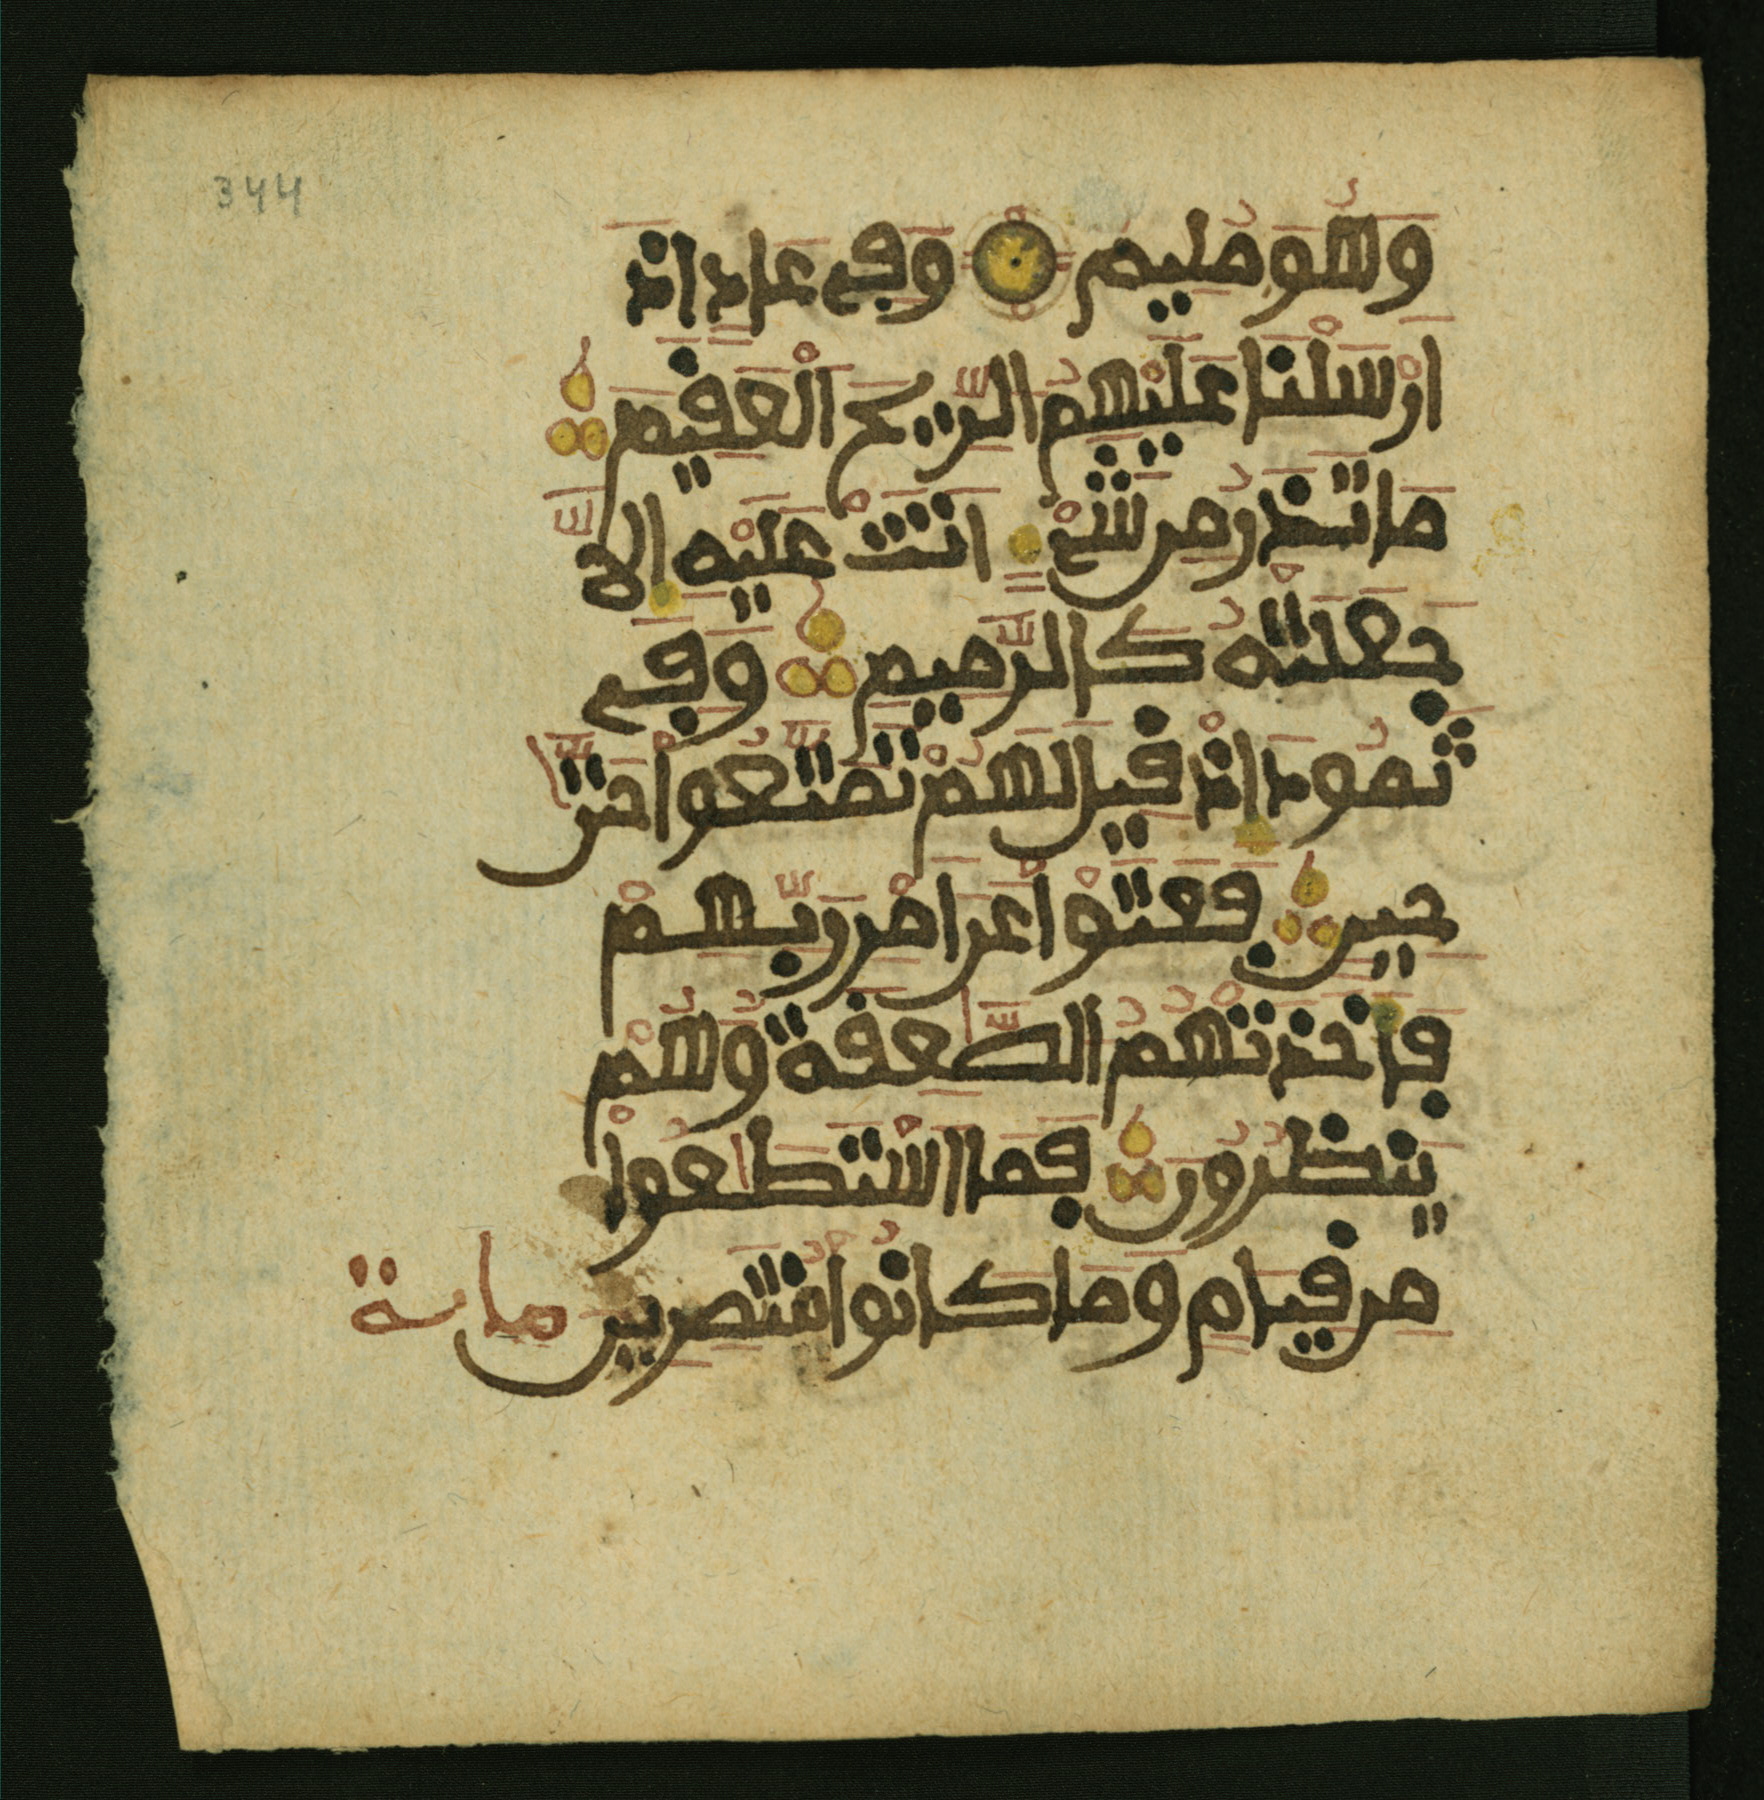 344
وَهُوَ مُلِيمٌ وَفِے عَادٍ اِذَ
اَرْسَلْنَا عَلَيْهِمُ الرِّيحَ اَلْعَفِيمَ
مَا تَذَرُ مِن شَےْءٍ اَتَتْ عَلَيْهِ إِلاَّ
جَعَلَتْهُ كَالرَّمِيمِ وَفِے
ثَمُودَ إِذْ فِيلَ لَهُمْ تَمَتَّعُواْ حَتَّىٰ
حِينٍ فَعَتَوْاْ عَنَ اَمْرِ رَبِّهِمْ
فَأَخَذَتْهُمُ اُلصَّٰعِفَةُ وَهُمْ
يَنظُرُونَ فَمَا اَسْتَطَٰعُواْ
مِن فِيَامٍ وَمَا كَانُواْ مُنتَصِرِينَ